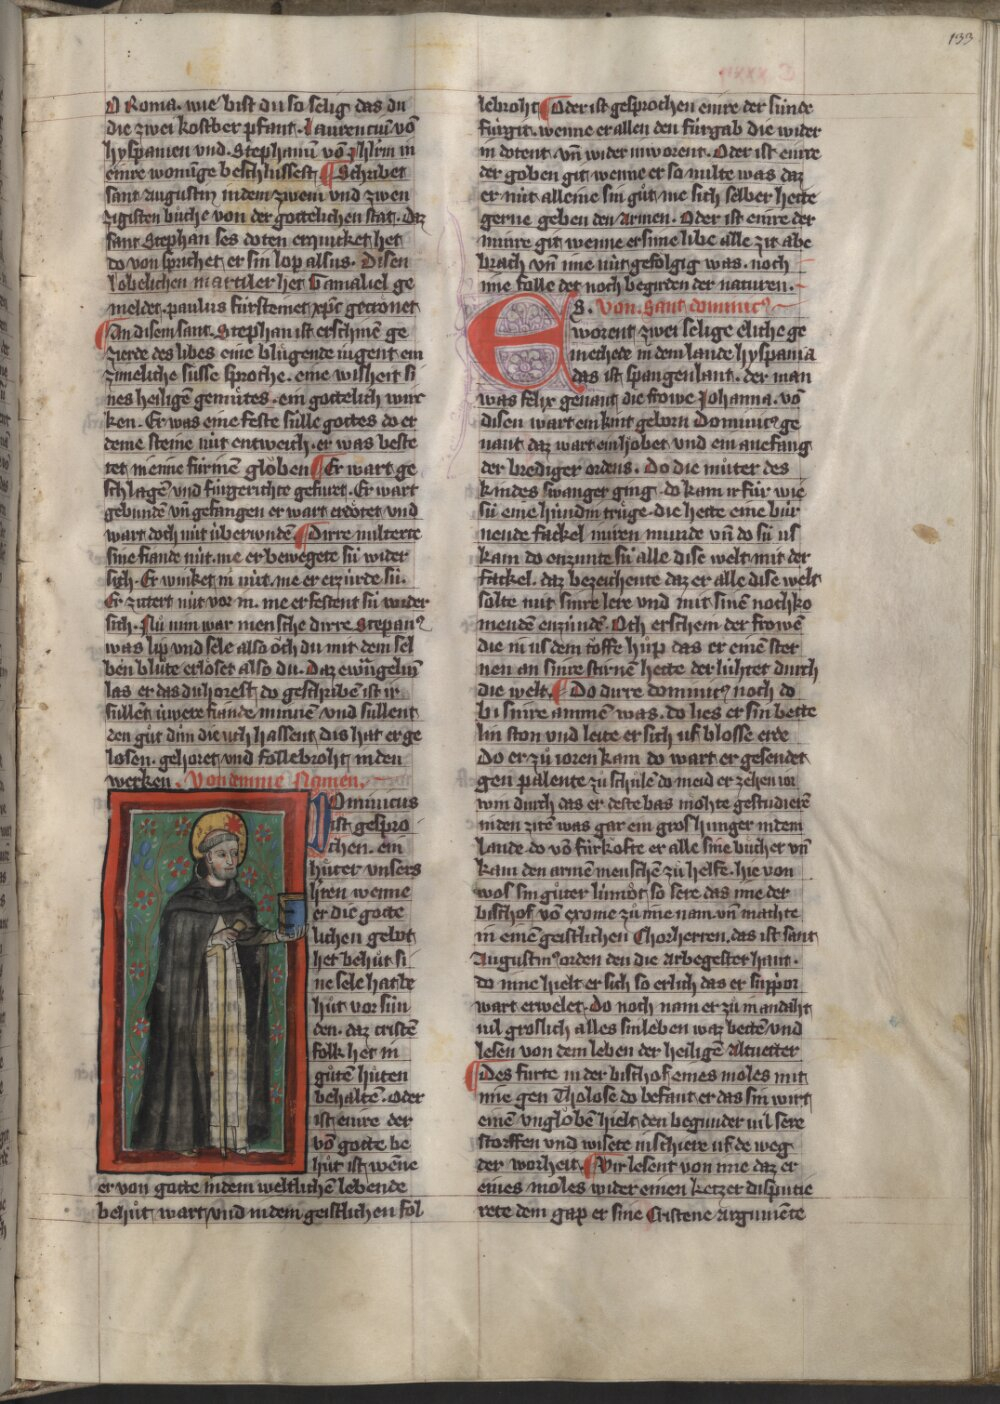 133
O Roma. wie bist du so selig das du
die zwei kostber pfant. Laurenciū vō
hyspanien vnd. Stephanū vō Jhrlm in
einre wonūge beschlussest Schribet
sant Augustin in dem zweni vnd zwen
zigisten bůche von der gottelichen stat. daz
sant Stephan ses doten erquicket het
do von sprichet er sin lop alsus. Disen
lobelichen martiler het Gamaliel ge
meldet. paulus für steinet xp̄c gecronet
An disem sant. Stephan ist erschinē ge
zierde des libes eine blůgende iugent ein
zimeliche süsse sproche. eine wisheit si
nes heiligē gemůtes. ein gottelich wür
ken. Er was eine feste sülle gottes do er
deme steine nüt entweich. er was beste
tet in einē fürinē gloͤben Er wart ge
schlagē vnd für gerichte gefüret. Er wart
gebundē vn̄ gefangen er wart erdötet vnd
wart doch nüt überwundē Dirre milterte
sine fiande nüt. me er bewegete sü wider
sich. Er winket in nüt. me er erzürde sü.
Er zitert nüt vor in. me er festent sü wider
sich. Nü nim war mensche dirre Stepanꝰ
was lip vnd sele also oͤch du mit dem sel
ben blůte erlöset also du. Daz ewāgeliū
las er das du horest do geschribē ist ir
süllēt üwere fiande minnē vnd süllent
den gůt důn die üch hassent dis hat er ge
lesen. gehoret vnd follebroht in den
werken. Von demme Namen.
Dominicus
ist gespro
chen. ein
hůter vnsers
h̄ren wenne
er die gotte
lichen gebot
het behůt si
ne sele hat be
hůt vor sün
den. daz cristē
folk het in
gůtē hůten
behaltē. Oder
ist einre der
vō gotte be
hůt ist wēne
er von gotte in dem weltlichē lebende
behůt wart vnd in dem geistlichen fol
lebroht Oder ist gesprochen einre der sünde
fürgit. wenne er allen den fürgab die wider
in dotent vn̄ wider in worent. Oder ist einre
der goben git wenne er so milte was daz
er nüt alleine sin gůt me sich selber hette
gerne geben den armen. Oder ist einre der
minre git wenne er sime libe alle zit abe
brach vn̄ ime nüt gefölgig was. noch
ime folle det noch begirden der naturen.
ES. Von sant dominicꝰ
worent zwei selige eliche ge
mechede in dem lande hyspania
das ist spangenlant. der man
was felix genant die frowe Johanna. vō
disen wart ein kint geborn Dominicꝰ ge
nant daz wart ein hobet vnd ein anefang
der brediger ordens. Do die můter des
kindes swanger ging. do kam ir für wie
sü eine hündin trůge. die hette eine bür
nende fackel in iren munde vn̄ do sü us
kam do enzunte sü alle dise welt mit der
fackel. daz bezeichente daz er alle dise welt
solte mit sinre lere vnd mit sinē nochko
mendē enzündē. Och erschein der frowē
die in us dem toͤffe hůp das er einē ster
nen an sinre stirnē hette der lühtet durch
die welt. Do dirre dominicꝰ noch do
bi sinre ammē was. do lies er sin bette
lin ston vnd leite er sich uf blosse erde
Do er zů ioren kam do wart er gesendet
gen palente zů schůle do meid er zehen ior
win durch das er deste bas mohte gestudierē
in den zitē was gar ein gros hunger in dem
lande. do vō fürkofte er alle sine bůcher vn̄
kam den armē menschē zů helfe. hie von
wos sin gůter lümot so sere das in e der
bischof vō exome zů ime nam. vn̄ machte
in einē geistlichen Chorherren. das ist sant
Augustinꝰ orden den die Arbegester hant.
do inne hielt er sich so erlich das er suppor
wart erwelet. Do noch nam er zů in andaht
vil groslich alles sin leben waz bettē vnd
lesen von dem leben der heiligē Altuetter
Des furte in der bischof eines moles mit
ime gen Tholose do befant er das sin wirt
einē vngloͤben hielt den begunder vil sere
stroffen vnd wisete in schiere uf de weg
der worheit. Wir lesent von ime daz er
eines moles wider einen ketzer disputie
rete dem gap er sine Cristene argumēte